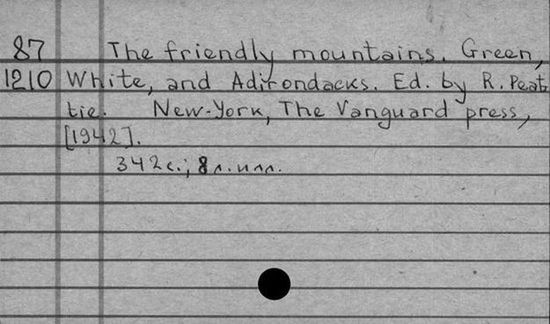 87 The friendly mountains. Green,
1210 White, and Adirondacks. Ed. by R. Peat
tie. New-York, The Vanguard press,
[1942].
342с.; 8л. илл.